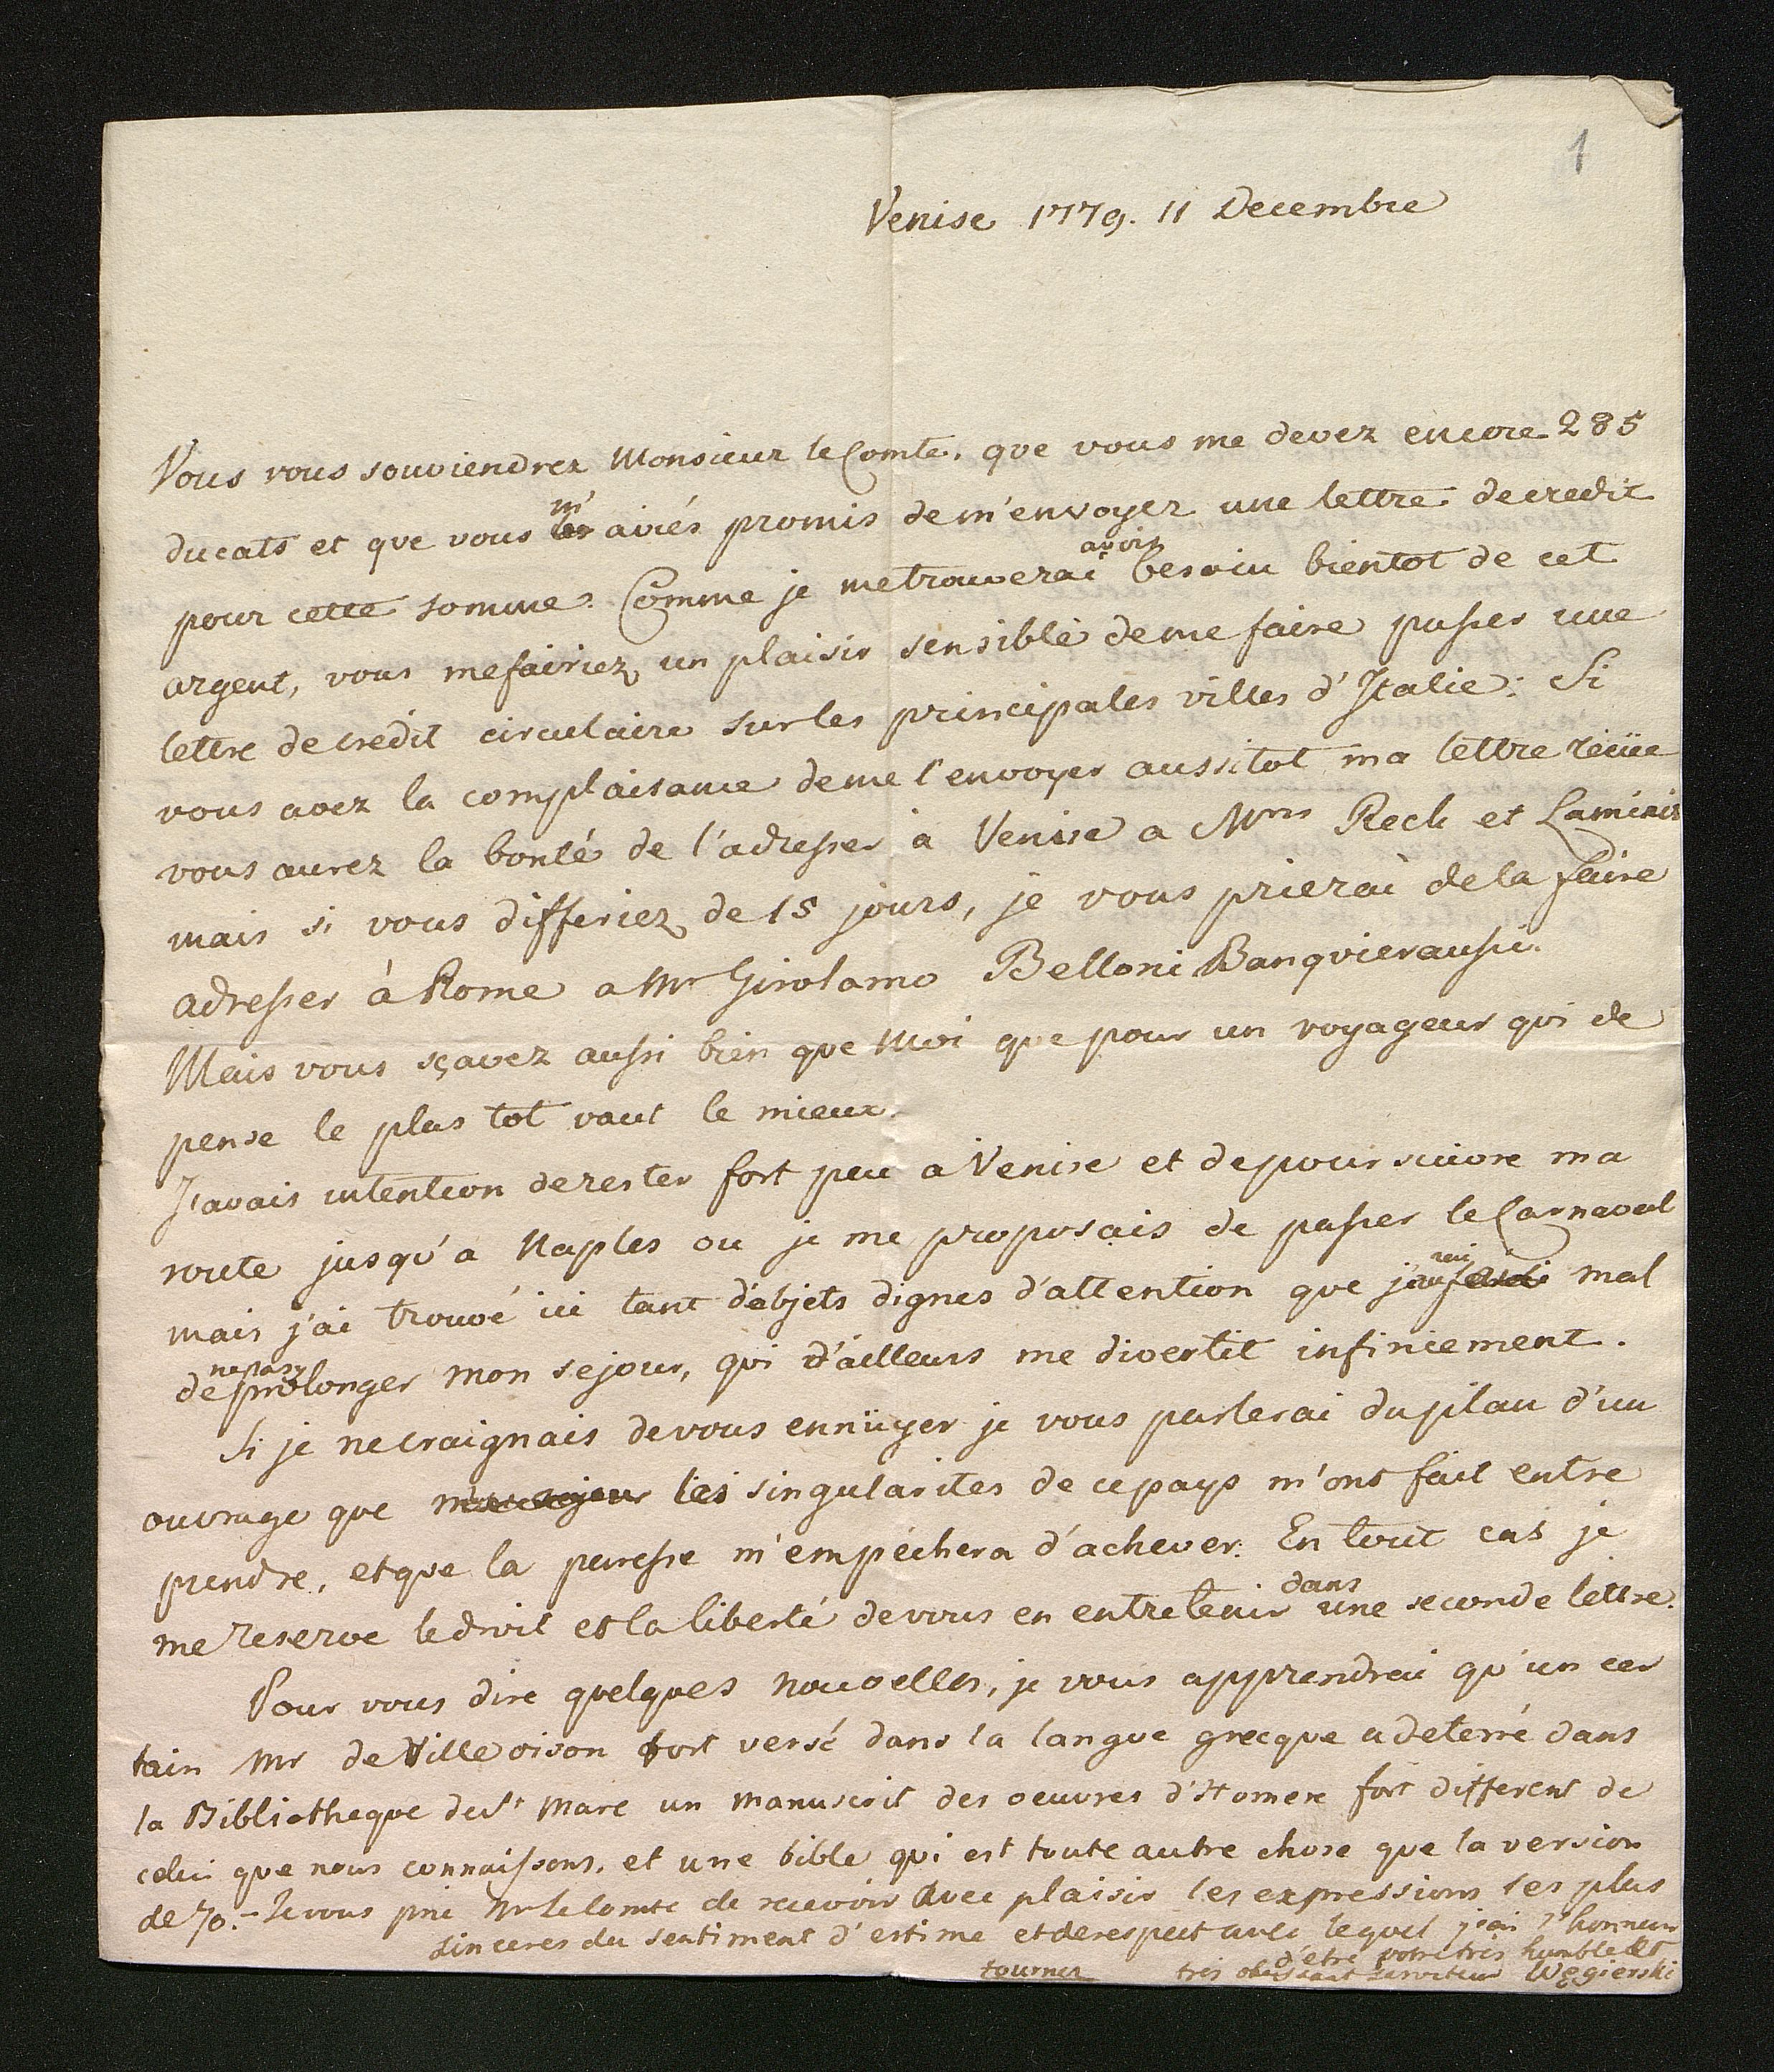 1
Venise 1779. 11 Decembre
Vous vous souviendrez Monsieur le Comte, que vous me devez encore 285
ducats et que vous m' aviés promis de m'envoyer une lettre de credit
pour cette somme. Comme je me trouverai avoir besoin bientot de cet
argent, vous me fairiez un plaisir sensible de me faire passer une
lettre de credit circulaire sur les principales villes d'Italie. Si
vous avez la complaisance de me l'envoyer aussitot ma lettre reçüe
vous aurez la bonté de l'adresser à Venise a Mrs Reck et Laminit
mais si vous differiez de 15 jours, je vous prierai de la faire
adresser à Rome a Mr Girolamo Belloni Banquier aussi.
Mais vous sçavez aussi bien que moi que pour un voyageur qui de
pense le plus tot vaut le mieux.
J'avais intention de rester fort peu a Venise et de poursuivre ma
route jusqu'a Naples ou je me proposais de passer le Carnaval
mais j'ai trouvé ici tant d'objets dignes d'attention que mal
de ne pas y prolonger mon sejour, qui d'ailleurs me divertit infiniement.
Si je ne craignais de vous ennüyer je vous parlerai du plan d'un
ouvrage que les singularites de ce pays m'ont fait entre
prendre, et que la paresse m'empéchera d'achever. En tout cas je
me reserve le droit et la liberté de vous en entretenir dans une seconde lettre.
Pour vous dire quelques nouvelles, je vous apprendrai qu'un cer
tain Mr de Villeoison fort versé dans la langue grecque a deterré dans
la Bibliotheque de St Marc un manuscrit des oeuvres d'Homere fort different de
celui que nous connaissons, et une bible qui est toute autre chose que la version
de 70. - Je vous prie Mr le Comte de recevoir avec plaisir les expressions les plus
sinceres du sentiment d'estime et de respect avec lequel j'ai l'honneur
d'etre votre tres humble et
tournez tres obeissant serviteur Węgierski